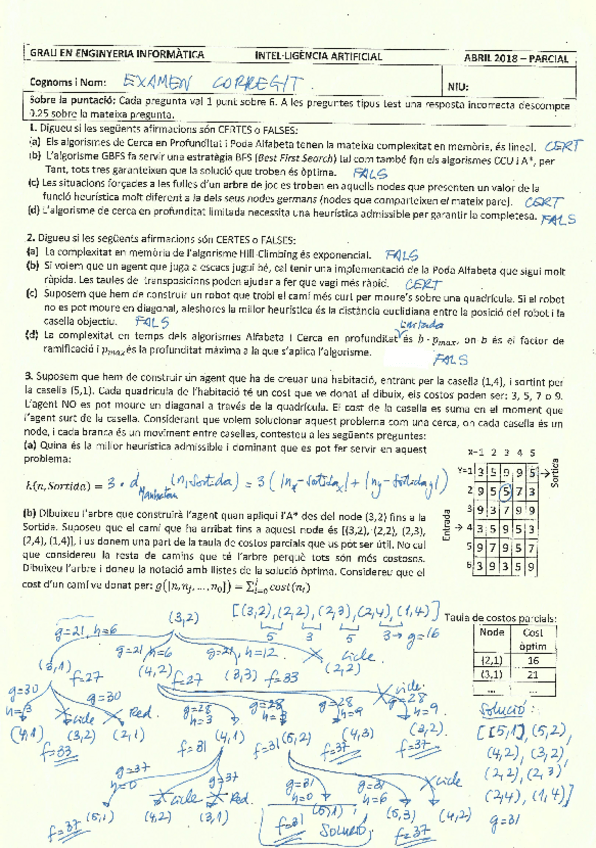 GRAU EN ENGINYERIA INFORMÀTICA INTEL·LIGÈNCIA ARTIFICIAL ABRIL 2018 – PARCIAL
Cognoms i Nom: EXAMEN CORREGIT NIU:
Sobre la puntació: Cada pregunta val 1 punt sobre 6. A les preguntes tipus test una resposta incorrecta descompte
0.25 sobre la mateixa pregunta.
1. Digueu si les següents afirmacions són CERTES o FALSES:
(a) Els algorismes de Cerca en Profunditat i Poda Alfabeta tenen la mateixa complexitat en memòria, és lineal. CERT
(b) L'algorisme GBFS fa servir una estratègia BFS (Best First Search) tal com també fan els algorismes CCU i A*, per
Tant, tots tres garanteixen que la solució que troben és òptima. FALS
(c) Les situacions forçades a les fulles d'un arbre de joc es troben en aquells nodes que presenten un valor de la
funció heurística molt diferent a la dels seus nodes germans (nodes que comparteixen el mateix pare). CERT
(d) L'algorisme de cerca en profunditat limitada necessita una heurística admissible per garantir la completesa. FALS
2. Digueu si les següents afirmacions són CERTES o FALSES:
(a) La complexitat en memòria de l'algorisme Hill-Climbing és exponencial. FALS
(b) Si volem que un agent que juga a escacs jugui bé, cal tenir una implementació de la Poda Alfabeta que sigui molt
ràpida. Les taules de transposicions poden ajudar a fer que vagi més ràpid. CERT
(c) Suposem que hem de construir un robot que trobi el camí més curt per moure's sobre una quadrícula. Si el robot
no es pot moure en diagonal, aleshores la millor heurística és la distància euclidiana entre la posició del robot i la
casella objectiu. FALS
limitada
(d) La complexitat en temps dels algorismes Alfabeta i Cerca en profunditat és b · pmax, on b és el factor de
ramificació i pmax és la profunditat màxima a la que s'aplica l'algorisme. FALS
3. Suposem que hem de construir un agent que ha de creuar una habitació, entrant per la casella (1,4), i sortint per
la casella (5,1). Cada quadrícula de l'habitació té un cost que ve donat al dibuix, els costos poden ser: 3, 5, 7 o 9.
L'agent NO es pot moure en diagonal a través de la quadrícula. El cost de la casella es suma en el moment que
l'agent surt de la casella. Considerant que volem solucionar aquest problema com una cerca, on cada casella és un
node, i cada branca és un moviment entre caselles, contesteu a les següents preguntes:
(a) Quina és la millor heurística admissible i dominant que es pot fer servir en aquest
problema:
h(n, Sortida) = 3 · d Manhattan (n, Sortida) = 3 ( |nx - sortidax| + |ny - sortiday| )
X=1 2 3 4 5
Y=1 3 5 9 9 5 Sortica
2 9 5 5 7 3
3 9 3 7 9 9
Entrada → 4 3 5 9 5 3
5 9 7 9 5 7
6 3 9 3 5 9
(b) Dibuixeu l'arbre que construirà l'agent quan apliqui l'A* des del node (3,2) fins a la
Sortida. Suposeu que el camí que ha arribat fins a aquest node és [(3,2), (2,2), (2,3),
(2,4), (1,4)], i us donem una part de la taula de costos parcials que us pot ser útil. No cal
que considereu la resta de camins que té l'arbre perquè tots son més costosos.
Dibuixeu l'arbre i doneu la notació amb llistes de la solució òptima. Considereu que el
cost d'un camí ve donat per: g([n, nj, ..., n0]) = Σ cost(ni)
(3,2) [(3,2),(2,2),(2,3),(2,4),(1,4)]
5 3 5 3 → g=16
Taula de costos parcials:
Node Cost òptim
(2,1) 16
(3,1) 21
... ...
g=21, h=6 g=21, h=6 g=21, h=12 cicle
(3,1) f=27 (4,2) f=27 (3,3) f=33 (2,2)
g=30 h=3 g=30 g=28 h=3 g=28 h=3 g=28 h=9 cicle g=28 h=9
(4,1) cicle (3,2) Red. (2,1) (4,1) (5,2) (4,3) (3,2)
f=33 f=31 f=31 f=37 f=37
g=37 h=0 g=37 g=31 h=0 g=31 h=6 cicle
(5,1) cicle (4,2) Red. (3,1) (5,1) (5,3) (4,2)
f=37 f=31 SOLUCIÓ! f=37
Solució:
[(5,1),(5,2),
(4,2),(3,2),
(2,2),(2,3)
(2,4),(1,4)]
g=31